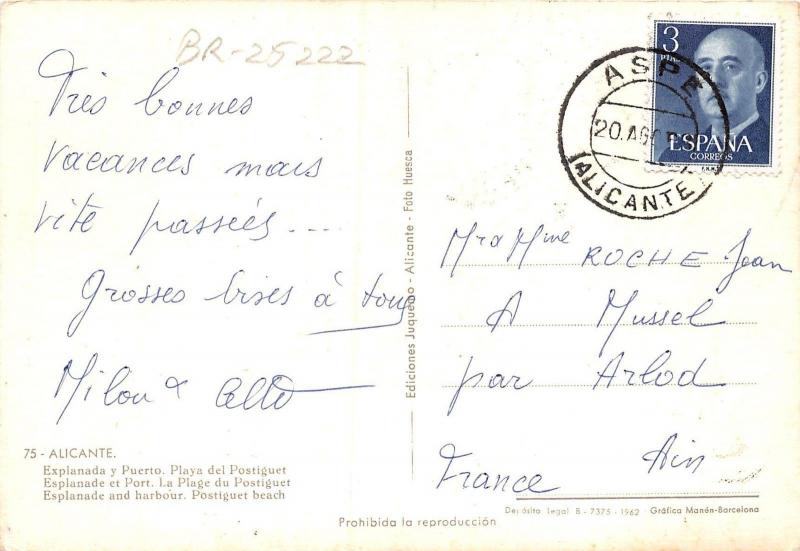 BR-25222
Très bonnes
vacances mais
vite passées ....
Grosses bises à tous
Milou &
75 - ALICANTE.
Explanada y Puerto. Playa del Postiguet
Esplanade et Port. La Plage du Postiguet
Esplanade and harbour. Postiguet beach
Prohibida la reproducción
Ediciones Juquedo - Alicante - Foto Huesca
3
PTAS
ESPAÑA
CORREOS
ASPE
20. AGO
(ALICANTE)
Mr a Mme ROCHE Jean
A Mussel
par Arlod
Ain
France
Depósito Legal B - 7375 - 1962 - Gráfica Manén-Barcelona